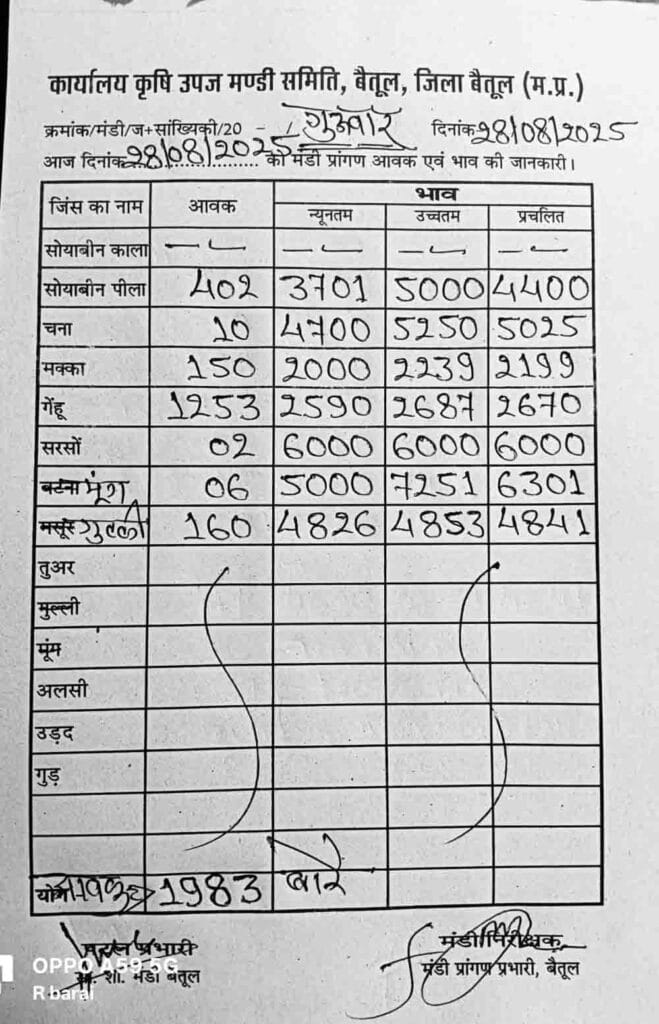 कार्यालय कृषि उपज मण्डी समिति, बैतूल, जिला बैतूल (म.प्र.)
क्रमांक/मंडी/ज+सांख्यिकी/20 - / गुरूवार दिनांक 28/08/2025
आज दिनांक 28/08/2025 को मंडी प्रांगण आवक एवं भाव की जानकारी।
जिंस का नाम आवक भाव
न्यूनतम उच्चतम प्रचलित
सोयाबीन काला — — — — — — — —
सोयाबीन पीला 402 3701 5000 4400
चना 10 4700 5250 5025
मक्का 150 2000 2239 2199
गेंहू 1253 2590 2687 2670
सरसों 02 6000 6000 6000
बटना मूंग 06 5000 7251 6301
मसूर गुल्ली 160 4826 4853 4841
तुअर
मुल्ली
मूंम
अलसी
उड़द
गुड़
योग 1983 बोरे
प्रभारी मंडी निरीक्षक
शा. मंडी बैतूल मंडी प्रांगण प्रभारी, बैतूल
OPPO A59 5G
R barai